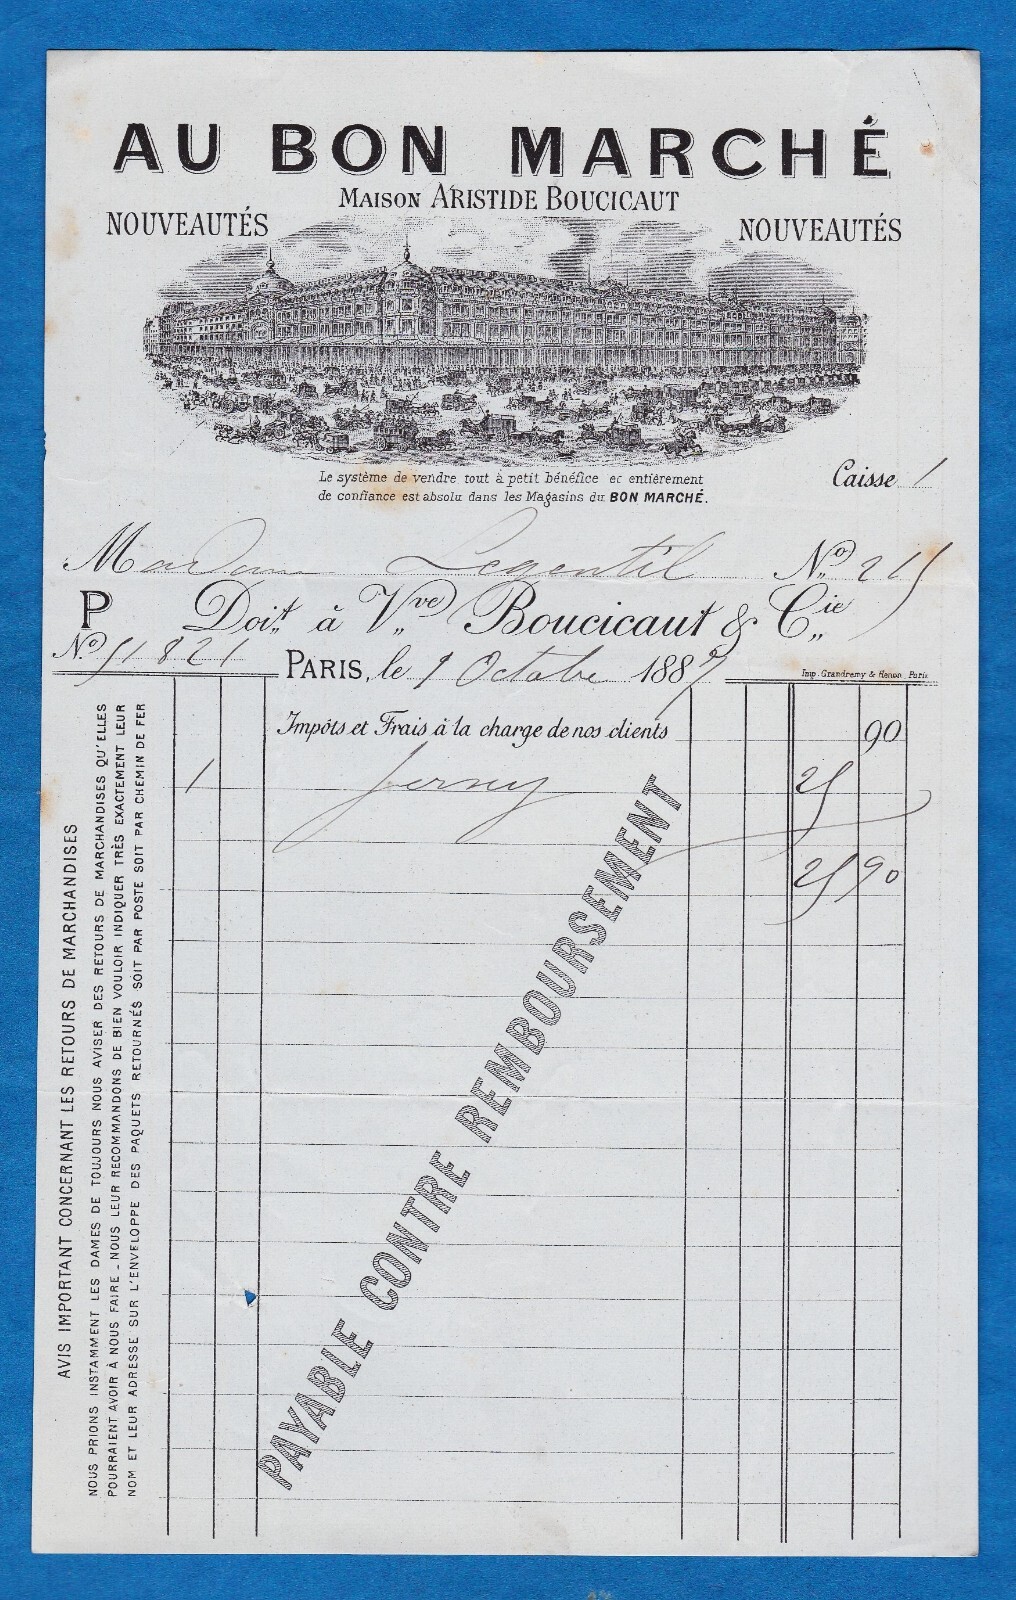 AU BON MARCHÉ
MAISON ARISTIDE BOUCICAUT
NOUVEAUTÉS
NOUVEAUTÉS
Le système de vendre tout à petit bénéfice et entièrement
de confiance est absolu dans les Magasins du BON MARCHÉ.
Caisse 1
Madame Legentil Nº 215
P Doit à Vve Boucicaut & Cie
Nº 51821
PARIS, le 9 Octobre 1887
Imp. Grandremy & Henon, Paris
Impôts et Frais à la charge de nos clients 90
1 Jersey 25
25 90
PAYABLE CONTRE REMBOURSEMENT
AVIS IMPORTANT CONCERNANT LES RETOURS DE MARCHANDISES
NOUS PRIONS INSTAMMENT LES DAMES DE TOUJOURS NOUS AVISER DES RETOURS DE MARCHANDISES QU'ELLES
POURRAIENT AVOIR À NOUS FAIRE _ NOUS LEUR RECOMMANDONS DE BIEN VOULOIR INDIQUER TRÈS EXACTEMENT LEUR
NOM ET LEUR ADRESSE SUR L'ENVELOPPE DES PAQUETS RETOURNÉS SOIT PAR POSTE SOIT PAR CHEMIN DE FER